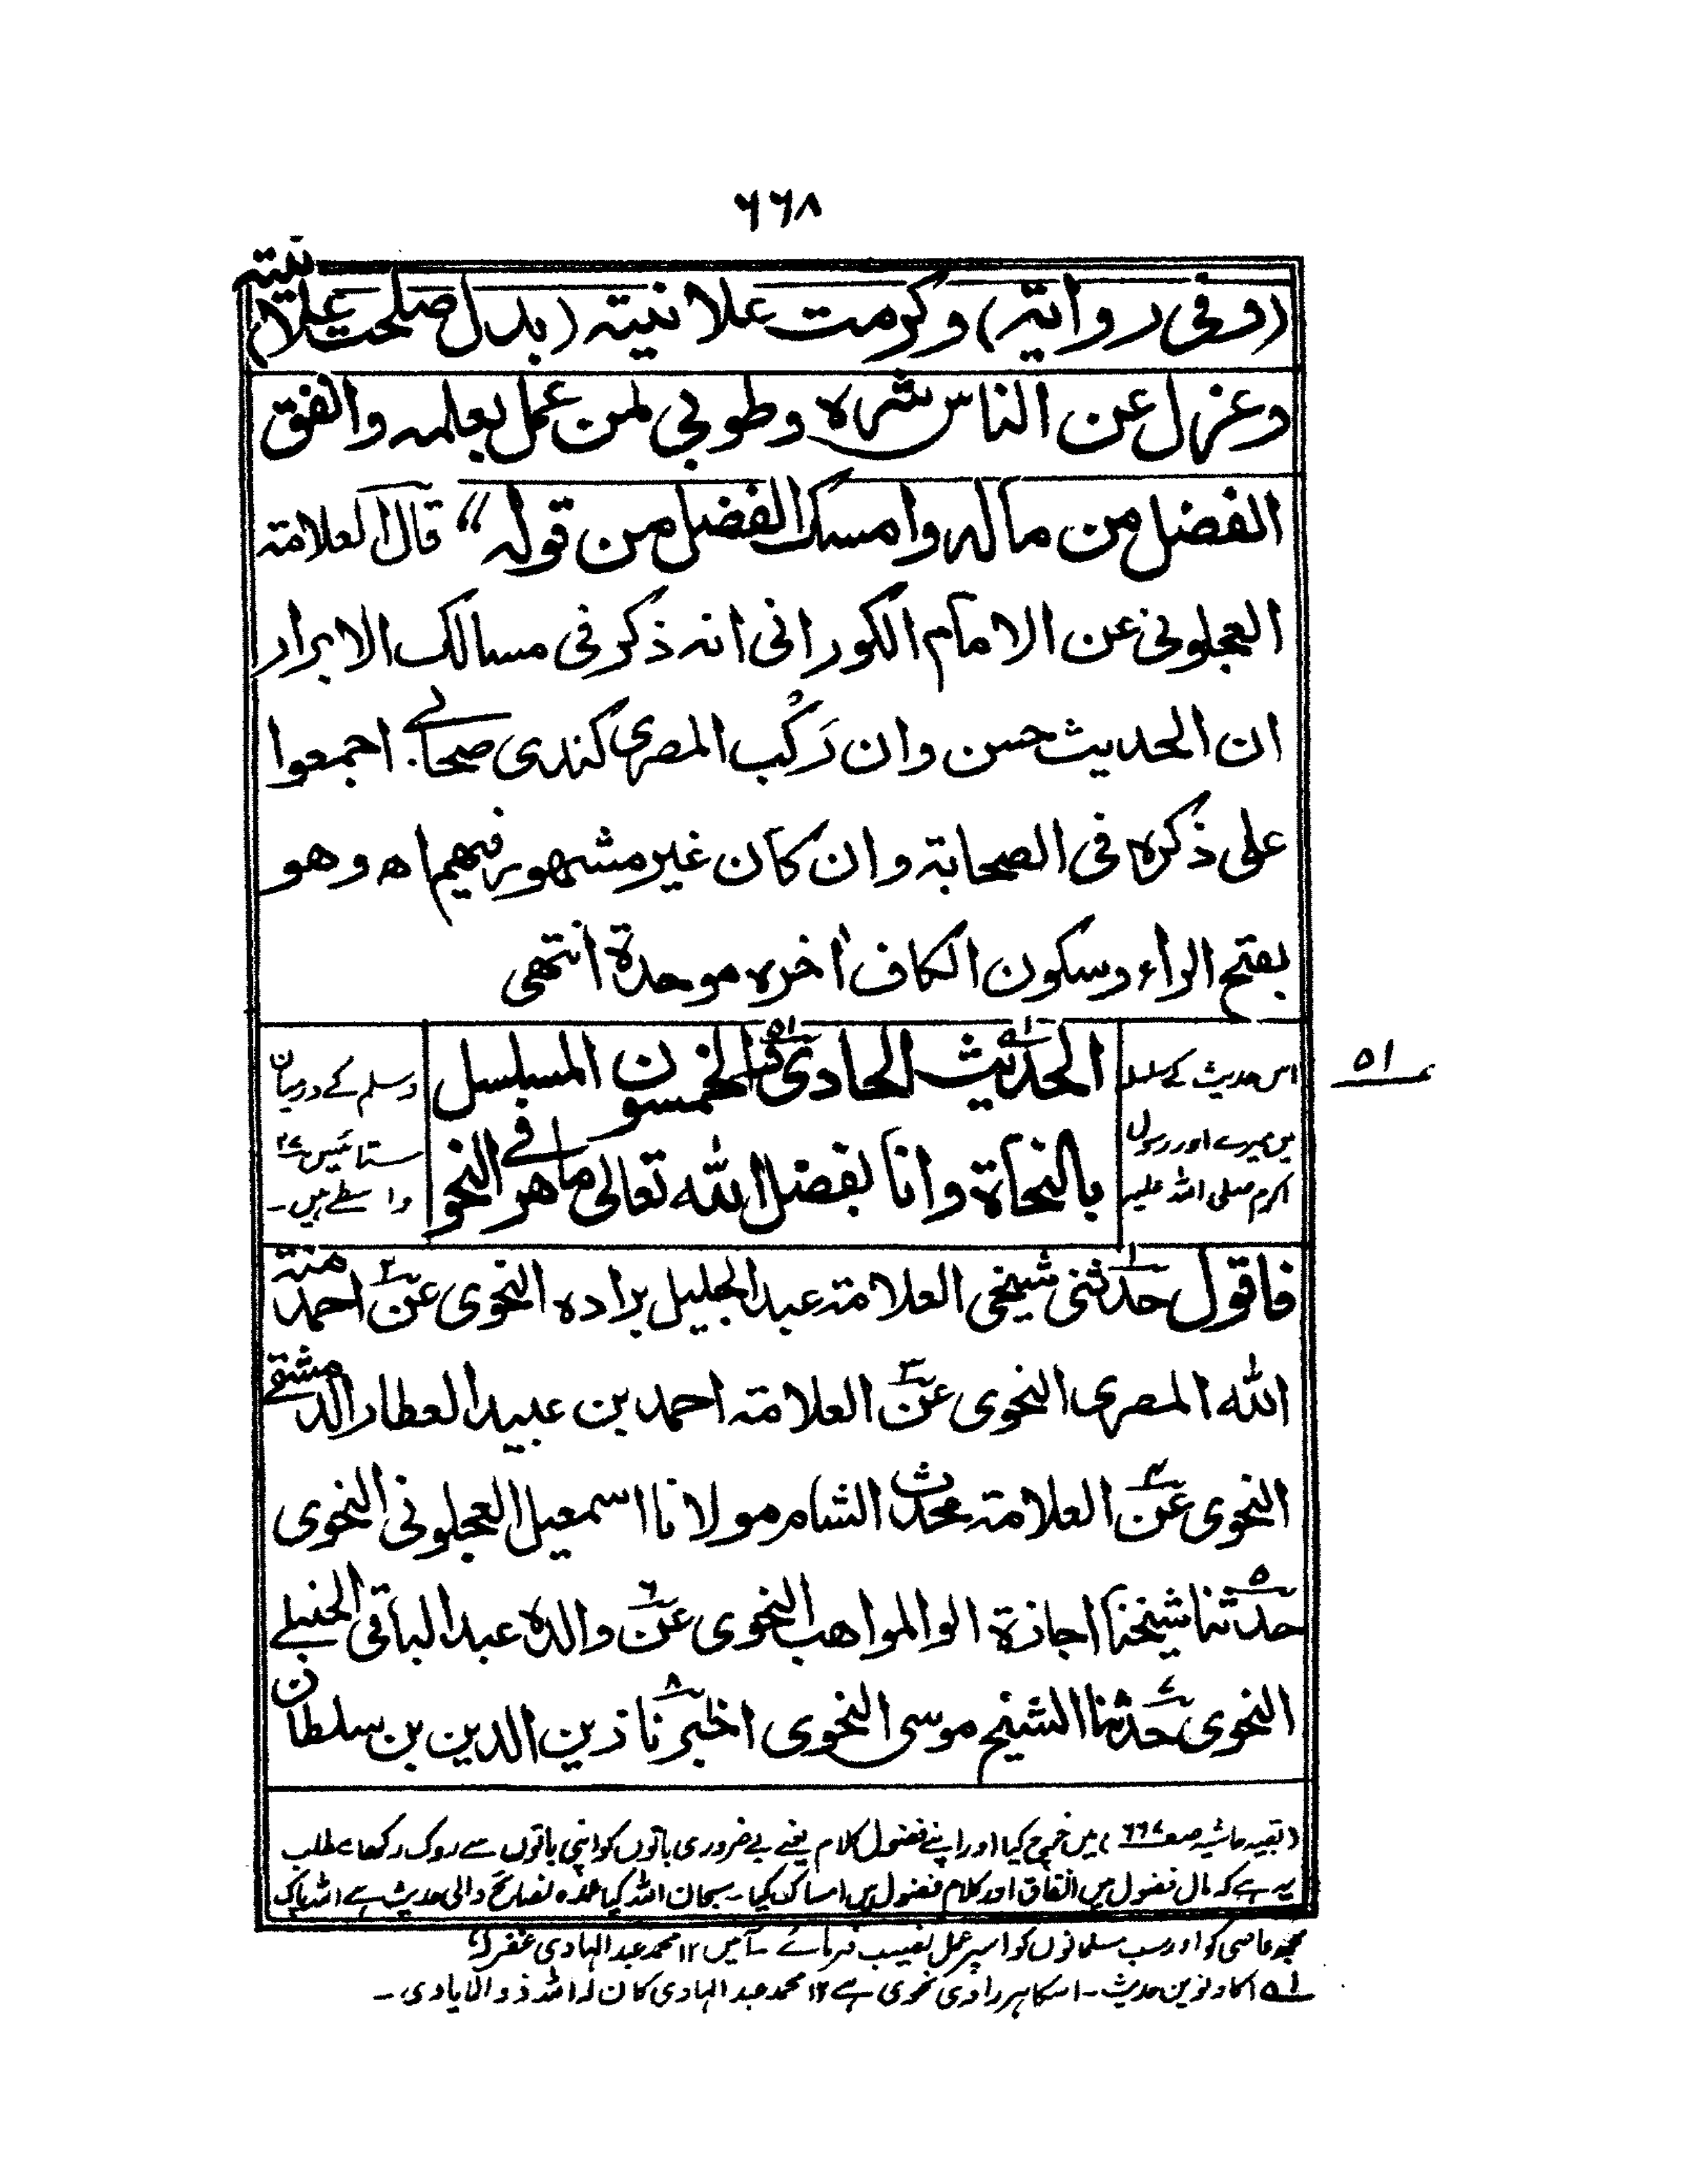 ٦٦٨
(وفی روایتہ) وکرمت علانیتہ (بدل صلحت علانیتہ)
وعزل عن الناس شرہ وطوبی لمن عمل بعلمہ وانفق
الفضل من مالہ وامسک الفضل من قولہ" قال العلامتہ
العجلونی عن الامام الکورانی انہ ذکر فی مسالک الابرار
ان الحدیث حسن وان رَکْب المصری کندی صحابی اجمعوا
علی ذکرہ فی الصحابۃ وان کان غیر مشھور فیھم اھ وھو
بفتح الراء وسکون الکاف اٰخرہ موحدۃ انتھی
٥١
الحدیث الحادی والخمسون المسلسل
بالنحاۃ وانا بفضل اللہ تعالی ماھر فی النحو
اس حدیث کے سلسلہ
میں میرے اور رسول
اکرم صلی اللہ علیہ
وسلم کے درمیان
ستائیس ٢٧
واسطے ہیں۔
فاقول حدثنی ١ شیخی العلامتہ عبدالجلیل برادہ النحوی عن ٢ احمد منتہ
اللہ المصری النحوی عن ٣ العلامتہ احمد بن عبید العطار الدمشقی
النحوی عن ٤ العلامتہ محدث الشام مولانا اسمعیل العجلونی النحوی
حدثنا ٥ شیخنا اجازۃ ابوالمواھب النحوی عن ٦ والدہ عبدالباقی الحنبلی
النحوی حدثنا ٧ الشیخ موسی النحوی اخبرنا ٨ زین الدین بن سلطان
(بقیہ حاشیہ صفحہ ٦٦٧) میں خرچ کیا اور اپنے فضول کلام یعنے بے ضروری باتوں کو اپنی باتوں سے روک رکھا، مطلب
یہ ہے کہ مال فضول میں انفاق اور کلام فضول میں امساک کیا۔ سبحان اللہ کیا عمدہ نصائح والی حدیث ہے اللہ پاک
مجھ عاصی کو اور سب مسلمانوں کو اسپر عمل نصیب فرمائے۔ آمین ١٢ محمد عبدالہادی غفرلہ
لہ ٥١ اکاونویں حدیث۔ اسکا ہر راوی نحوی ہے ١٢ محمد عبدالہادی کان لہ اللہ ذوالایادی۔